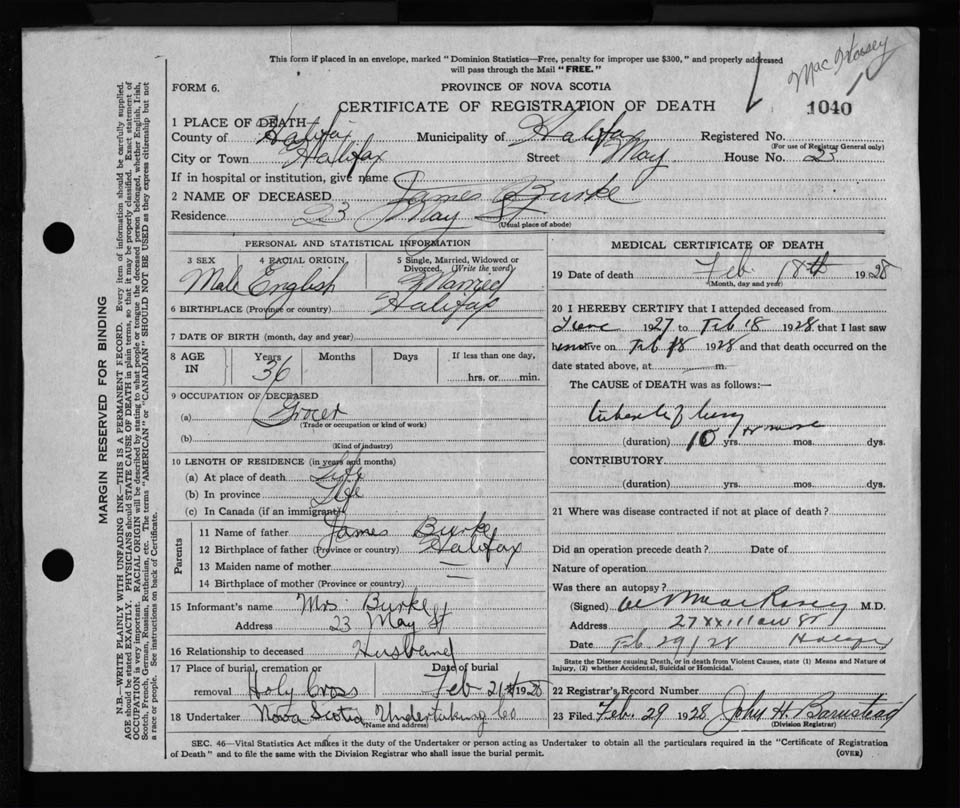 This form if placed in an envelope, marked "Dominion Statistics—Free, penalty for improper use $300," and properly addressed
will pass through the Mail "FREE."
FORM 6.
PROVINCE OF NOVA SCOTIA
CERTIFICATE OF REGISTRATION OF DEATH
1040
1 PLACE OF DEATH
County of Halifax Municipality of Halifax Registered No.
(For use of Registrar General only)
City or Town Halifax Street May House No. 23
If in hospital or institution, give name
2 NAME OF DECEASED James Burke
Residence 23 May St
(Usual place of abode)
PERSONAL AND STATISTICAL INFORMATION
3 SEX 4 RACIAL ORIGIN 5 Single, Married, Widowed or Divorced. (Write the word)
Male English Married
6 BIRTHPLACE (Province or country) Halifax
7 DATE OF BIRTH (month, day and year)
8 AGE IN Years Months Days If less than one day,
36 hrs. or min.
9 OCCUPATION OF DECEASED
(a) Grocer
(Trade or occupation or kind of work)
(b)
(Kind of industry)
10 LENGTH OF RESIDENCE (in years and months)
(a) At place of death Life
(b) In province Life
(c) In Canada (if an immigrant)
Parents
11 Name of father James Burke
12 Birthplace of father (Province or country) Halifax
13 Maiden name of mother —
14 Birthplace of mother (Province or country) —
15 Informant's name Mrs Burke
Address 23 May St
16 Relationship to deceased Husband
17 Place of burial, cremation or removal Holy Cross Date of burial Feb 21st 1928
18 Undertaker Nova Scotia Undertaking Co
(Name and address)
MEDICAL CERTIFICATE OF DEATH
19 Date of death Feb. 18th 1928
(Month, day and year)
20 I HEREBY CERTIFY that I attended deceased from
1927 to Feb 18 1928 that I last saw
h alive on Feb 18 1928 and that death occurred on the
date stated above, at m.
The CAUSE of DEATH was as follows:—
(duration) 10 yrs. or more mos. dys.
CONTRIBUTORY
(duration) yrs. mos. dys.
21 Where was disease contracted if not at place of death?
Did an operation precede death? Date of
Nature of operation
Was there an autopsy?
(Signed) M.D.
Address
Date Feb 29/28
State the Disease causing Death, or in death from Violent Causes, state (1) Means and Nature of
Injury, (2) whether Accidental, Suicidal or Homicidal.
22 Registrar's Record Number
23 Filed Feb. 29 1928 John H. Barnstead
(Division Registrar)
SEC. 46—Vital Statistics Act makes it the duty of the Undertaker or person acting as Undertaker to obtain all the particulars required in the "Certificate of Registration
of Death" and to file the same with the Division Registrar who shall issue the burial permit.
(OVER)
MARGIN RESERVED FOR BINDING
N.B.—WRITE PLAINLY WITH UNFADING INK—THIS IS A PERMANENT RECORD. Every item of information should be carefully supplied.
AGE should be stated EXACTLY. PHYSICIANS should STATE CAUSE OF DEATH in plain terms, so that it may be properly classified. Exact statement of
OCCUPATION is very important. RACIAL ORIGIN will be described by stating to what people or tongue the deceased person belonged, whether English, Irish,
Scotch, French, German, Russian, Ruthenian, etc. The terms "AMERICAN" or "CANADIAN" SHOULD NOT BE USED as they express citizenship but not
a race or people. See instructions on back of Certificate.